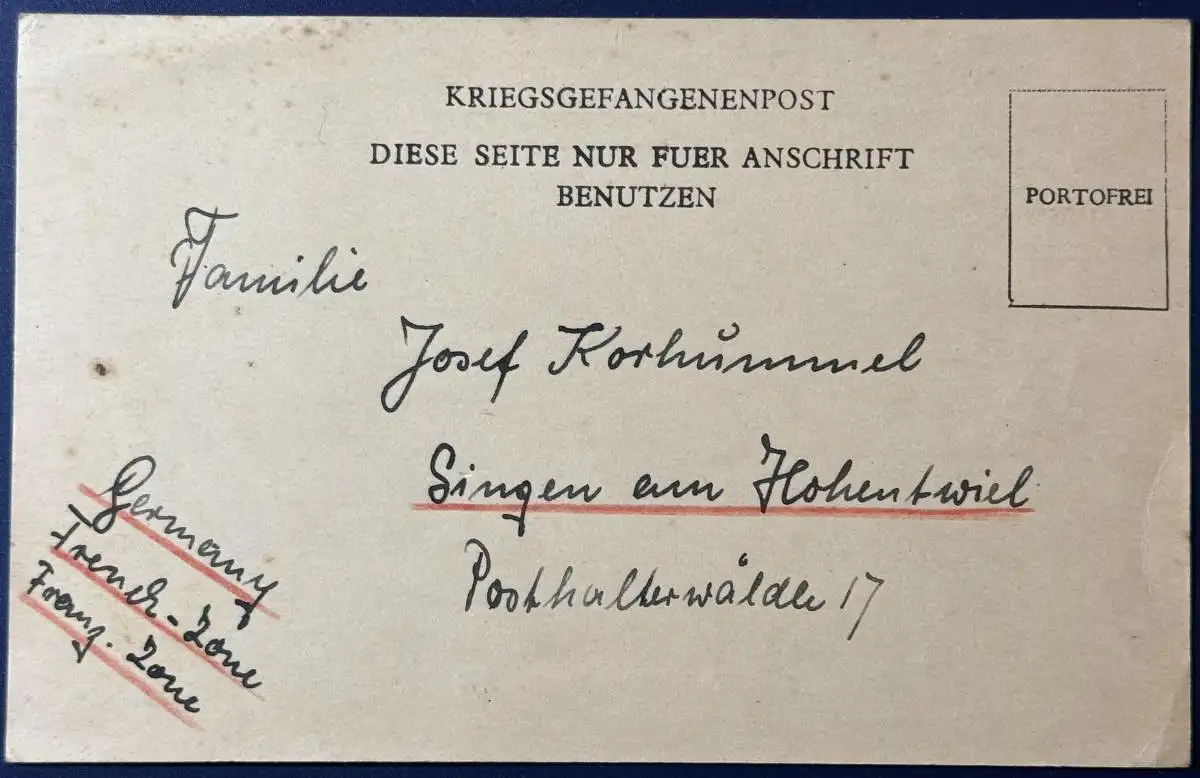 KRIEGSGEFANGENENPOST
DIESE SEITE NUR FUER ANSCHRIFT
BENUTZEN
PORTOFREI
Familie
Josef Korhummel
Singen am Hohentwiel
Posthalterwäldle 17
Germany
French-Zone
Franz. Zone